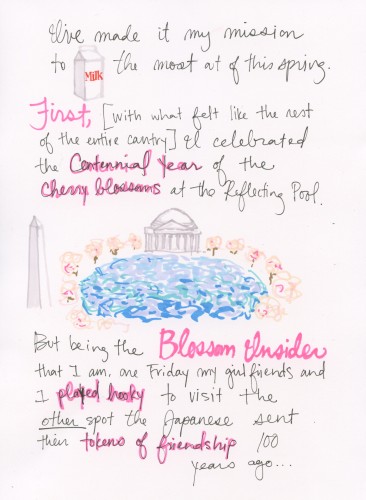 I've made it my mission
to
Milk
the most out of this spring.
First, [with what felt like the rest
of the entire cantry] I celebrated
the Centennial Year of the
Cherry blossoms at the Reflecting Pool.
But being the Blossom Insider
that I am, one Friday my girlfriends and
I played hooky to visit the
other spot the Japanese sent
their tokens of friendship 100
years ago...